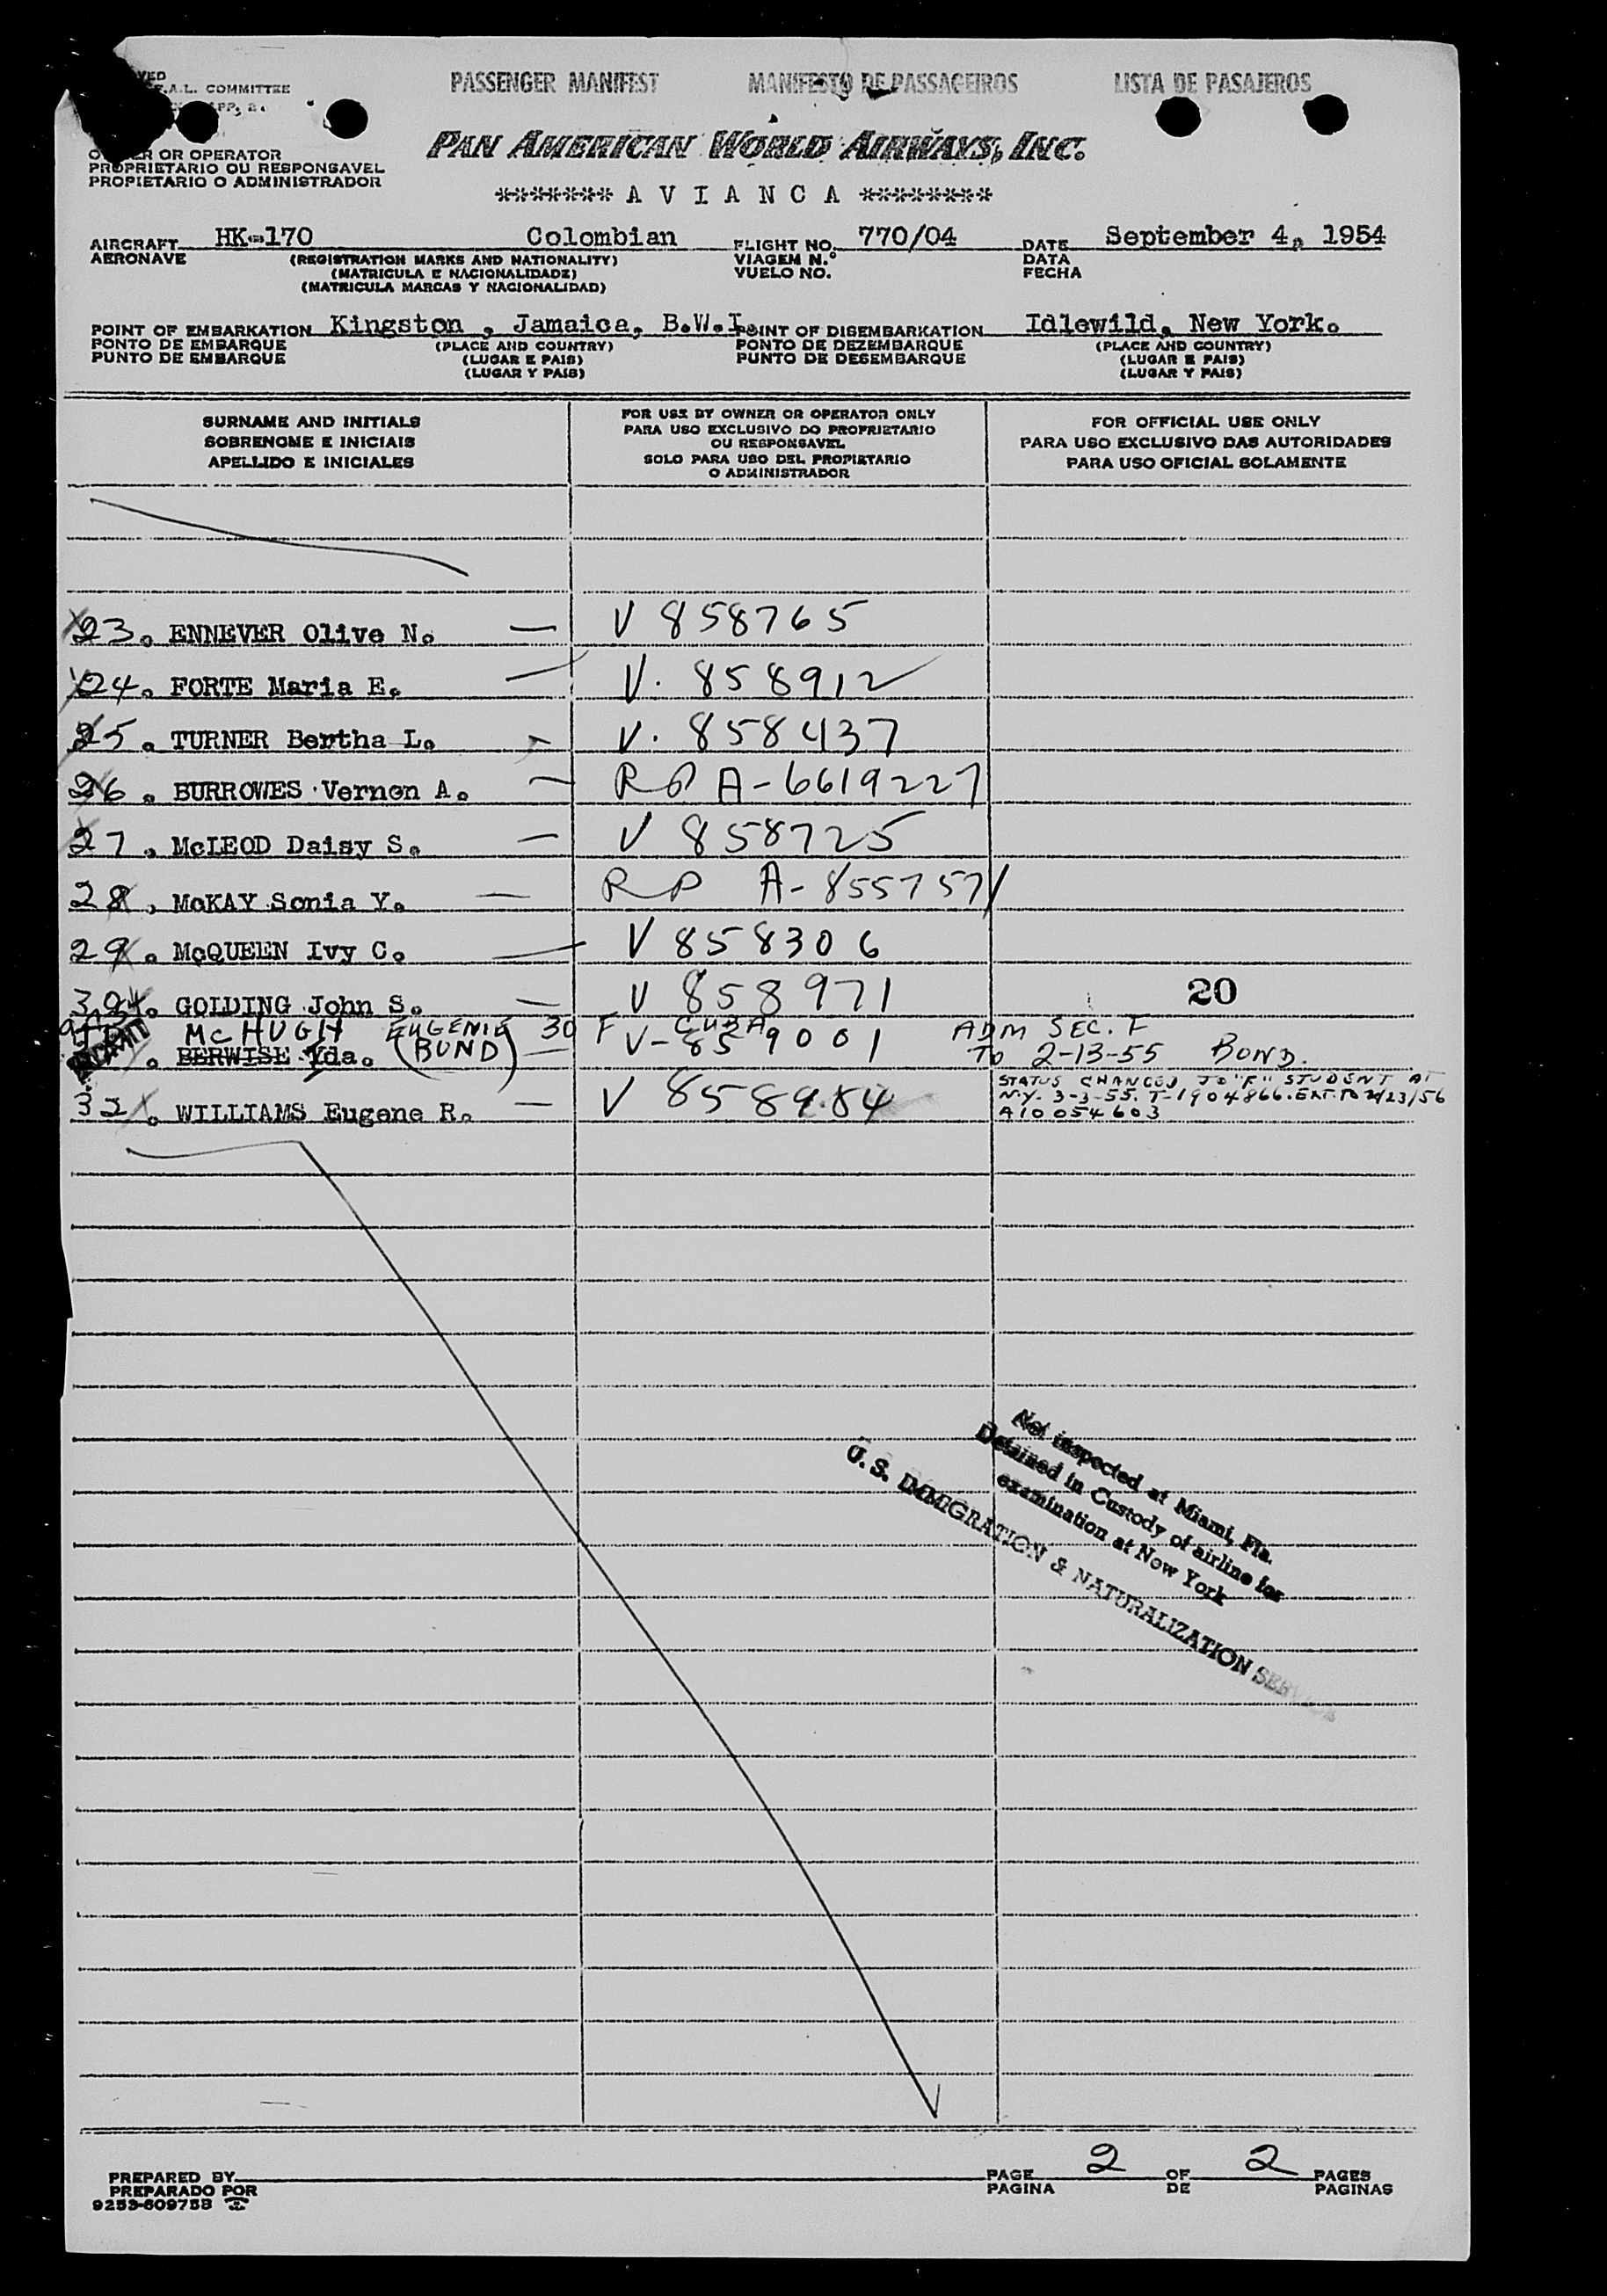 F.A.L. COMMITTEE
PASSENGER MANIFEST MANIFESTO DE PASSAGEIROS LISTA DE PASAJEROS
PAN AMERICAN WORLD AIRWAYS, INC.
OWNER OR OPERATOR
PROPRIETARIO OU RESPONSAVEL
PROPIETARIO O ADMINISTRADOR
******* A V I A N C A ********
AIRCRAFT HK-170 Colombian FLIGHT NO. 770/04 DATE September 4, 1954
AERONAVE (REGISTRATION MARKS AND NATIONALITY) VIAGEM N.° DATA
(MATRICULA E NACIONALIDADE) VUELO NO. FECHA
(MATRICULA MARCAS Y NACIONALIDAD)
POINT OF EMBARKATION Kingston , Jamaica, B.W.I. POINT OF DISEMBARKATION Idlewild, New York.
PONTO DE EMBARQUE (PLACE AND COUNTRY) PONTO DE DEZEMBARQUE (PLACE AND COUNTRY)
PUNTO DE EMBARQUE (LUGAR E PAIS) PUNTO DE DESEMBARQUE (LUGAR E PAIS)
(LUGAR Y PAIS) (LUGAR Y PAIS)
SURNAME AND INITIALS
SOBRENOME E INICIAIS
APELLIDO E INICIALES
FOR USE BY OWNER OR OPERATOR ONLY
PARA USO EXCLUSIVO DO PROPRIETARIO
OU RESPONSAVEL
SOLO PARA USO DEL PROPIETARIO
O ADMINISTRADOR
FOR OFFICIAL USE ONLY
PARA USO EXCLUSIVO DAS AUTORIDADES
PARA USO OFICIAL SOLAMENTE
23. ENNEVER Olive N. — V 858765
24. FORTE Maria E. — V. 858912
25. TURNER Bertha L. V. 858437
26. BURROWES Vernon A. — RP A-6619227
27. McLEOD Daisy S. — V 858725
28. McKAY Sonia V. — RP A-8557571
29. McQUEEN Ivy C. — V 858306
30. GOLDING John S. — V 858971 20
McHUGH EUGENIE 30 F CUBA ADM SEC. F
BERWISE Yda. (BOND) — V-859001 TO 2-13-55 BOND.
STATUS CHANGED TO "F" STUDENT AT
N.Y. 3-3-55. T-1904866. EXT. TO 2/23/56
A10 054 603
32. WILLIAMS Eugene R. — V 858984
Not inspected at Miami, Fla.
Detained in Custody of airline for
examination at New York
U.S. IMMIGRATION & NATURALIZATION SERVICE
PREPARED BY PAGE 2 OF 2 PAGES
PREPARADO POR PAGINA DE PAGINAS
9253-609758